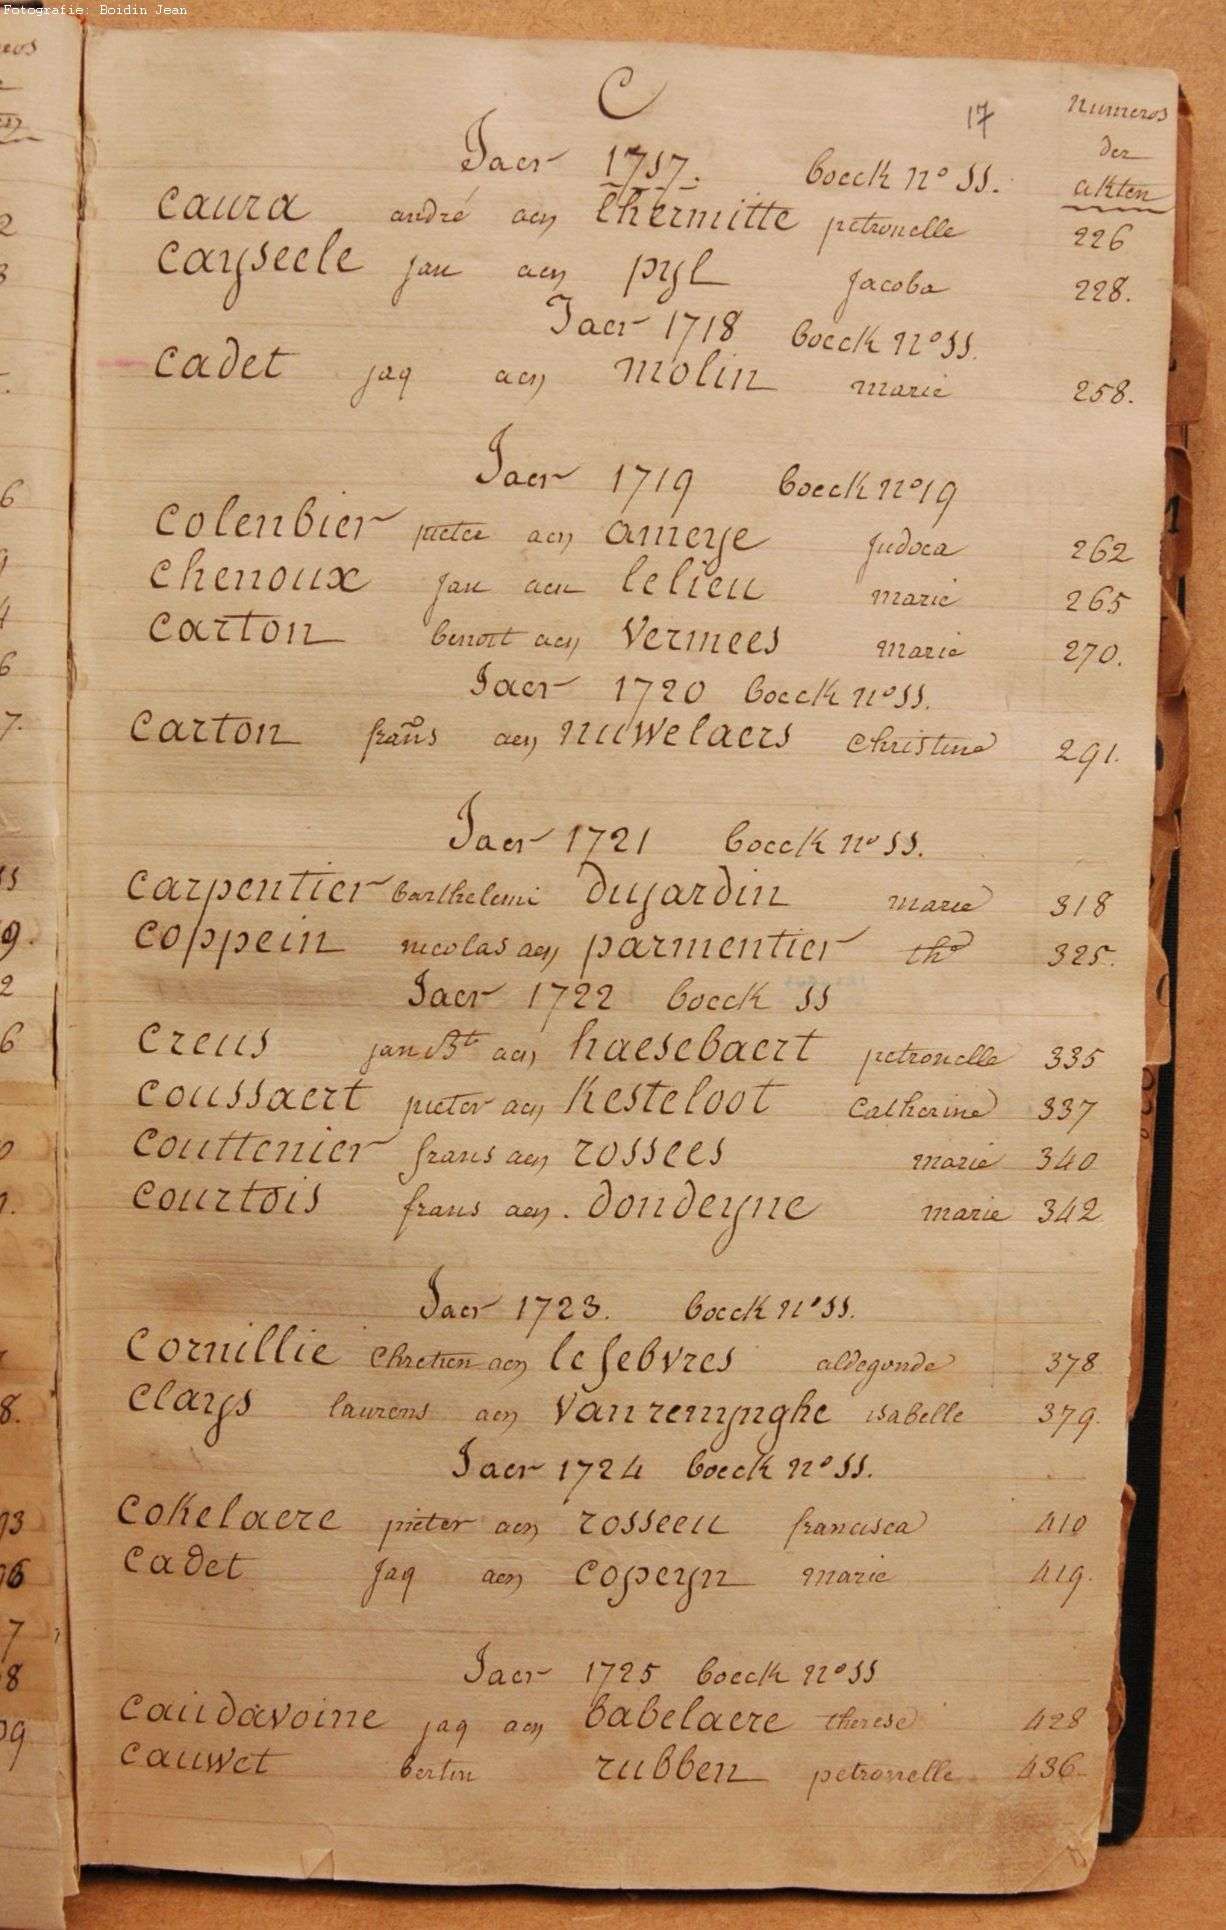 Fotografie: Boidin Jean
C
17
Numeros
der
akten
Jaer 1717. boeck n° SS.
caura andré aen lhermitte petronelle 226
cayseele jan aen pyl Jacoba 228.
Jaer 1718 boeck n° SS.
cadet jaq aen molin marie 258.
Jaer 1719 boeck n° 19
colenbier pieter aen ameye judoca 262
chenoux jan aen lelieu marie 265
carton benoit aen vermees marie 270.
Jaer 1720 boeck n° SS.
carton frans aen nuwelaers christine 291.
Jaer 1721 boeck n° SS.
carpentier barthelemi dujardin marie 318
coppein nicolas aen parmentier th° 325.
Jaer 1722 boeck SS
creus jan Bt aen haesebaert petronelle 335
coussaert pieter aen Kesteloot Catherine 337
couttenier frans aen rossees marie 340
courtois frans aen. dondeyne marie 342
Jaer 1723. boeck n° SS.
cornillie chretien aen lefebvres aldegonde 378
clays laurens aen vanremynghe isabelle 379.
Jaer 1724 boeck n° SS.
cokelaere pieter aen rosseeu francisca 410
cadet Jaq aen copeyn marie 419.
Jaer 1725 boeck n° SS
caudavoine jaq aen babelaere therese 428
cauwet bertin rubben petronelle 436